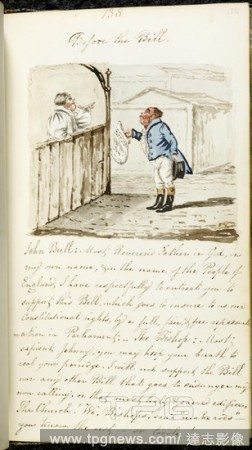 138
Before the Bill.
John Bull: Most Reverend Father in God, in
my own name, & in the name of the People of
England, I have respectfully to entreat you to
support this Bill, which goes to insure to us our
Constitutional rights, by a full, fair, & free represen-
tation in Parliament. The Bishop: Most
sapient Johnny, you may keep your breath to
cool your porridge. I will not support the Bill
nor any other Bill that goes to endanger my
own calling, or the most holy edifice,
The Church. No! Bishops,
you know the rest.
www.tpgnews.com / 達志影像